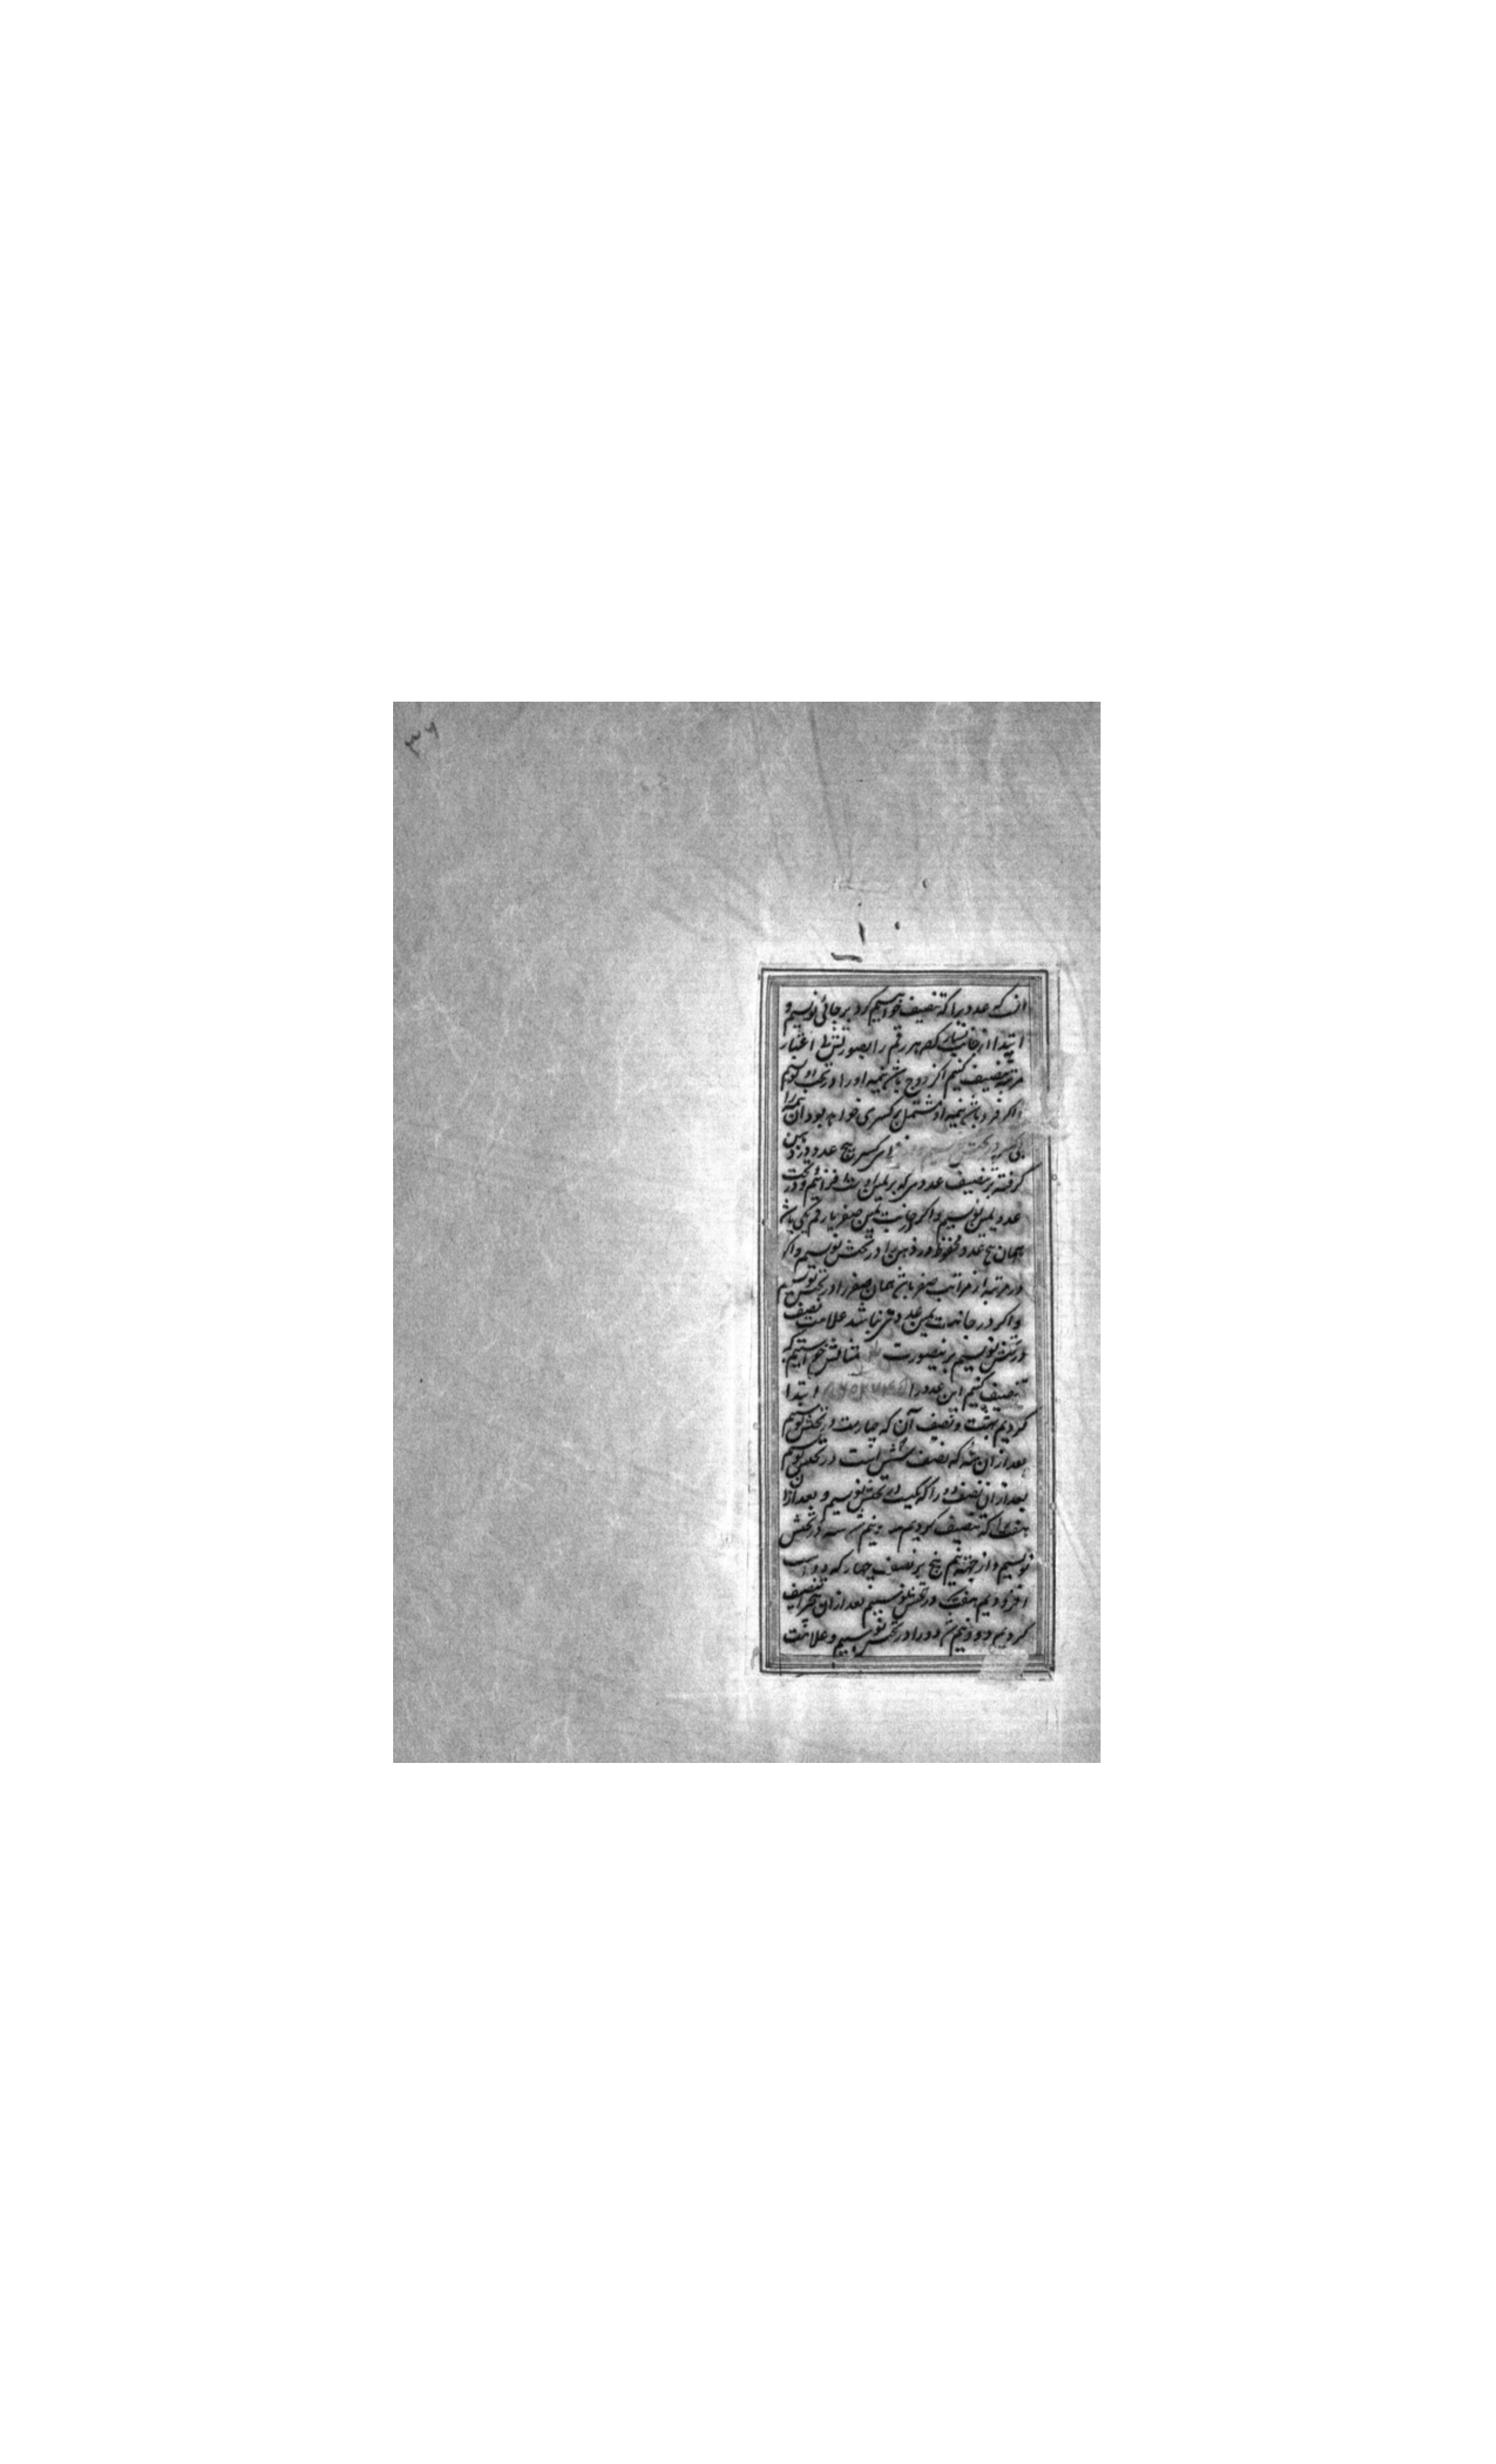 ۳۶
آنست که عددیرا که تنصیف خواهیم کرد بر جائی نویسیم و
ابتدا از جانب یسار کرده هر رقم را بصورتش بی اعتبار
مرتبه تنصیف کنیم اگر زوج باشد نیمه او را در تحت او نویسیم
و اگر فرد باشد نیمه او مشتمل بر کسری خواهد بود آن نیمه را
بی کسر در تحتش نویسیم و از برای کسر پنج عدد در ذهن
گرفته بر تنصیف عددی که بر یمین اوست افزائیم و در تحت
عدد یمین نویسیم و اگر در جانب یمین صفر یا رقم یکی باشد
همان پنج عدد محفوظ در ذهن را در تحتش نویسیم و اگر
در مرتبه از مراتب صفر باشد همان صفر را در تحتش نویسیم
و اگر در جانب یمین عددی نباشد علامت نصف
در تحتش نویسیم برینصورت مثالش خواستیم که
تنصیف کنیم این عدد را ابتدا
کردیم بهشت و نصف آن که چهارست در تحتش نویسیم
بعد از آن سه که نصف شش است در تحتش نویسیم
بعد از آن نصف دو را که یکیست در تحتش نویسیم و بعد از آن
هفت را که تنصیف کردیم سه و نیم شد سه در تحتش
نویسیم و از جهت نیم پنج بر نصف چهار که دو است
افزودیم هفت در تحتش نویسیم بعد از آن پنج را تنصیف
کردیم دو و نیم شد دو را در تحتش نویسیم و علامت